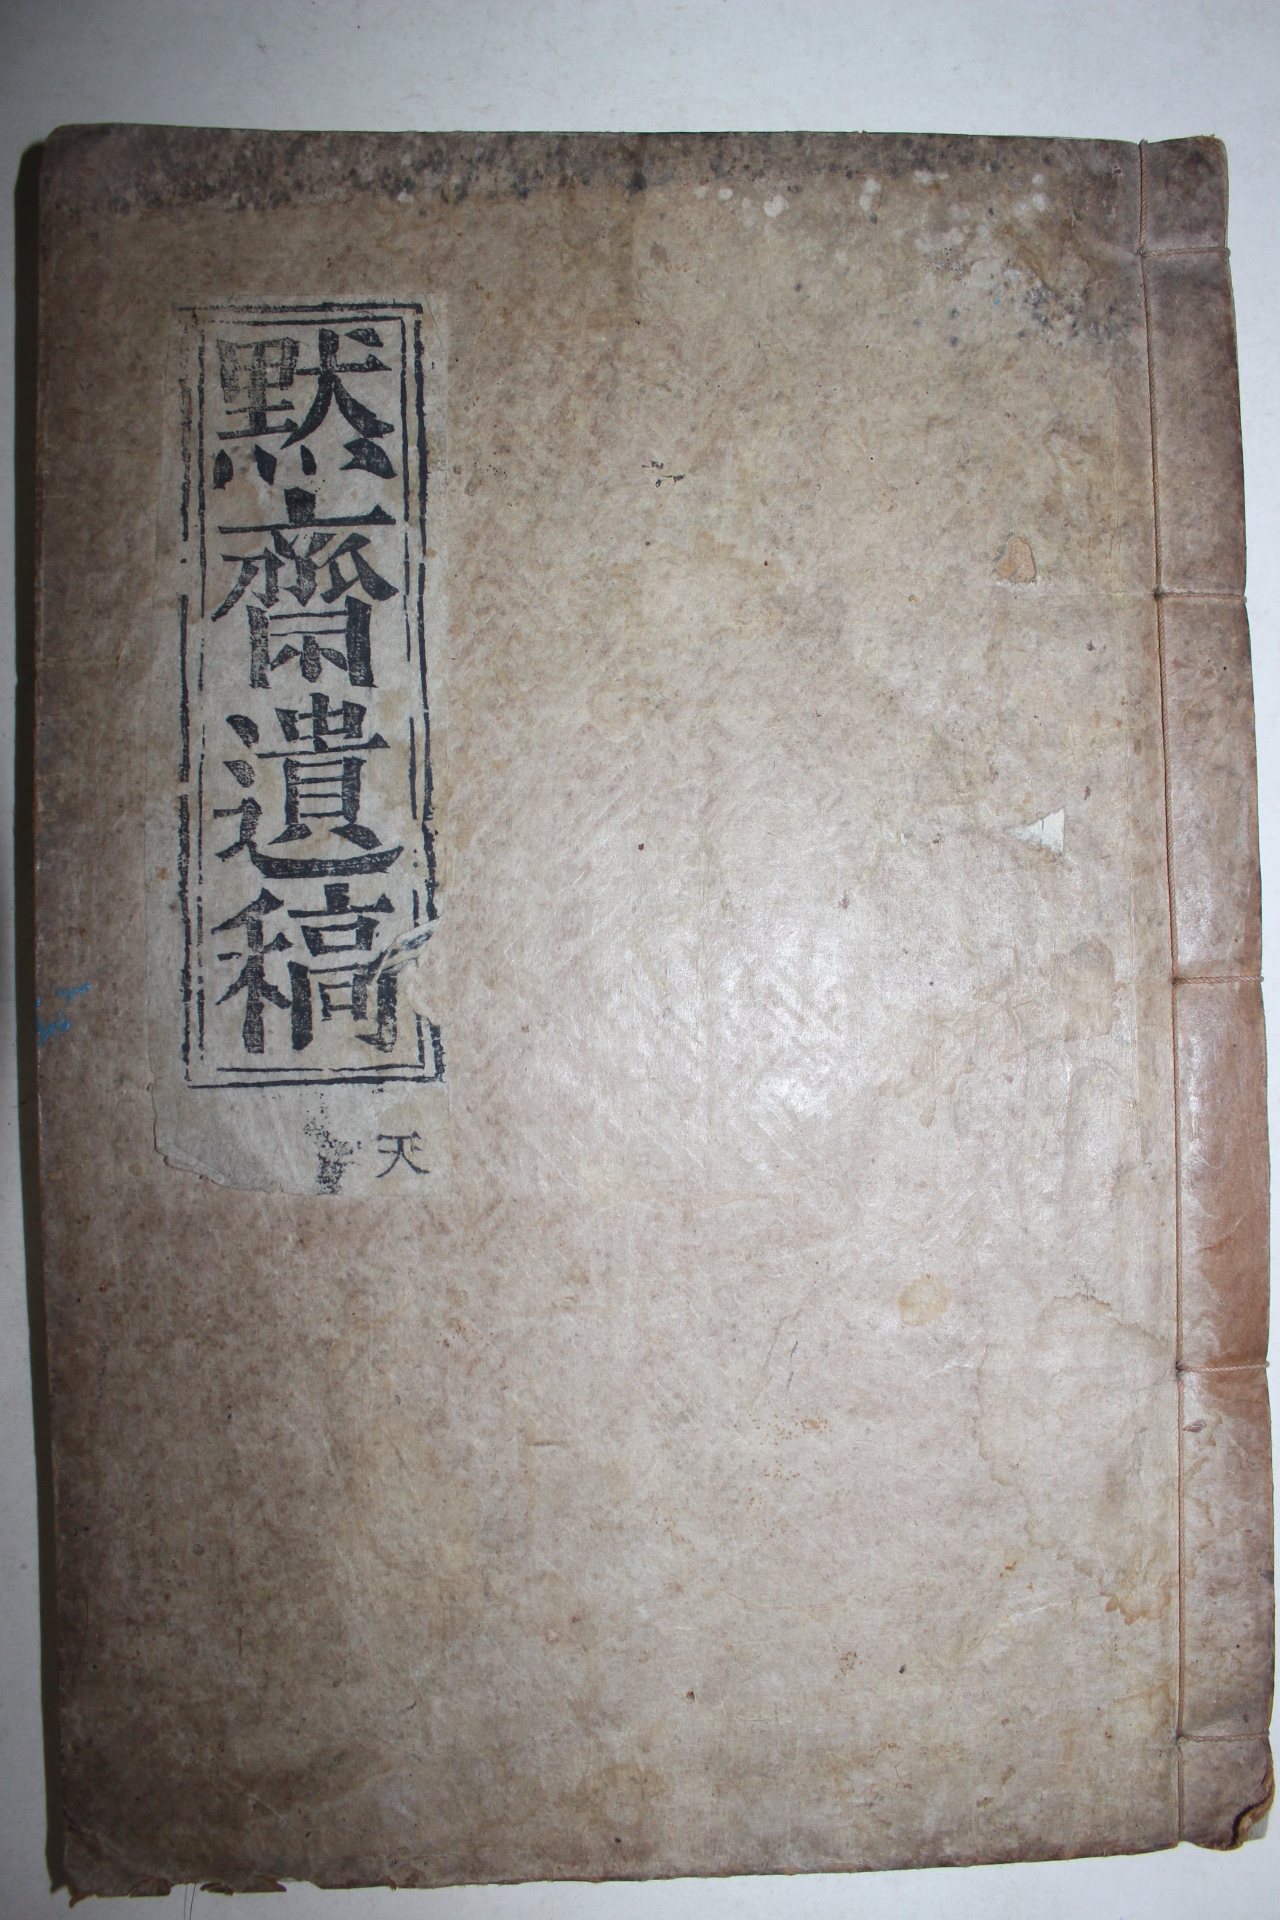 默齋遺稿
天